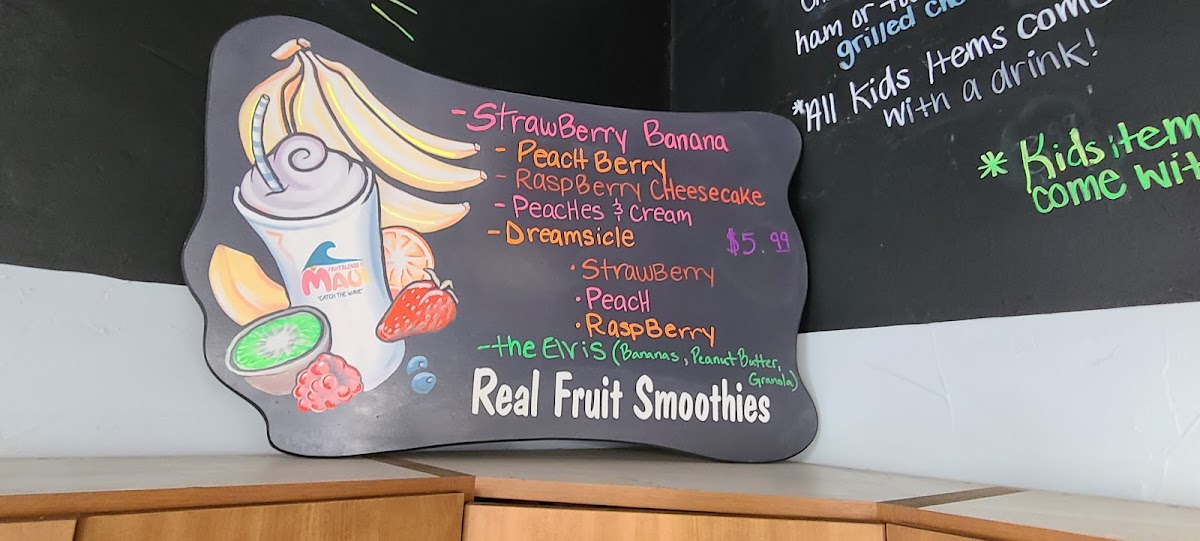 - StrawBerry Banana
- Peach Berry
- RaspBerry Cheesecake
- Peaches & Cream
- Dreamsicle
$5.99
• StrawBerry
• Peach
• RaspBerry
- the Elvis (Bananas, Peanut Butter,
Granola)
Real Fruit Smoothies
FRUIT BLENDS
MAUI
"CATCH THE WAVE"
ham or
grilled
*All Kids Items come
with a drink!
* Kids item
come wit